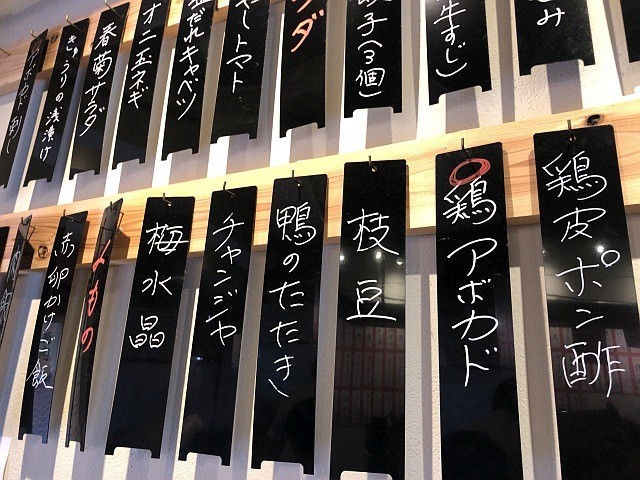 み
牛すじ)
餃子(3個)
ダ
トマト
だれキャベツ
オニ玉ネギ
春菊サラダ
きゅうりの浅漬け
アボカド刺し
鶏皮ポン酢
鶏アボカド
枝豆
鴨のたたき
チャンジャ
梅水晶
もの
赤卵かけご飯